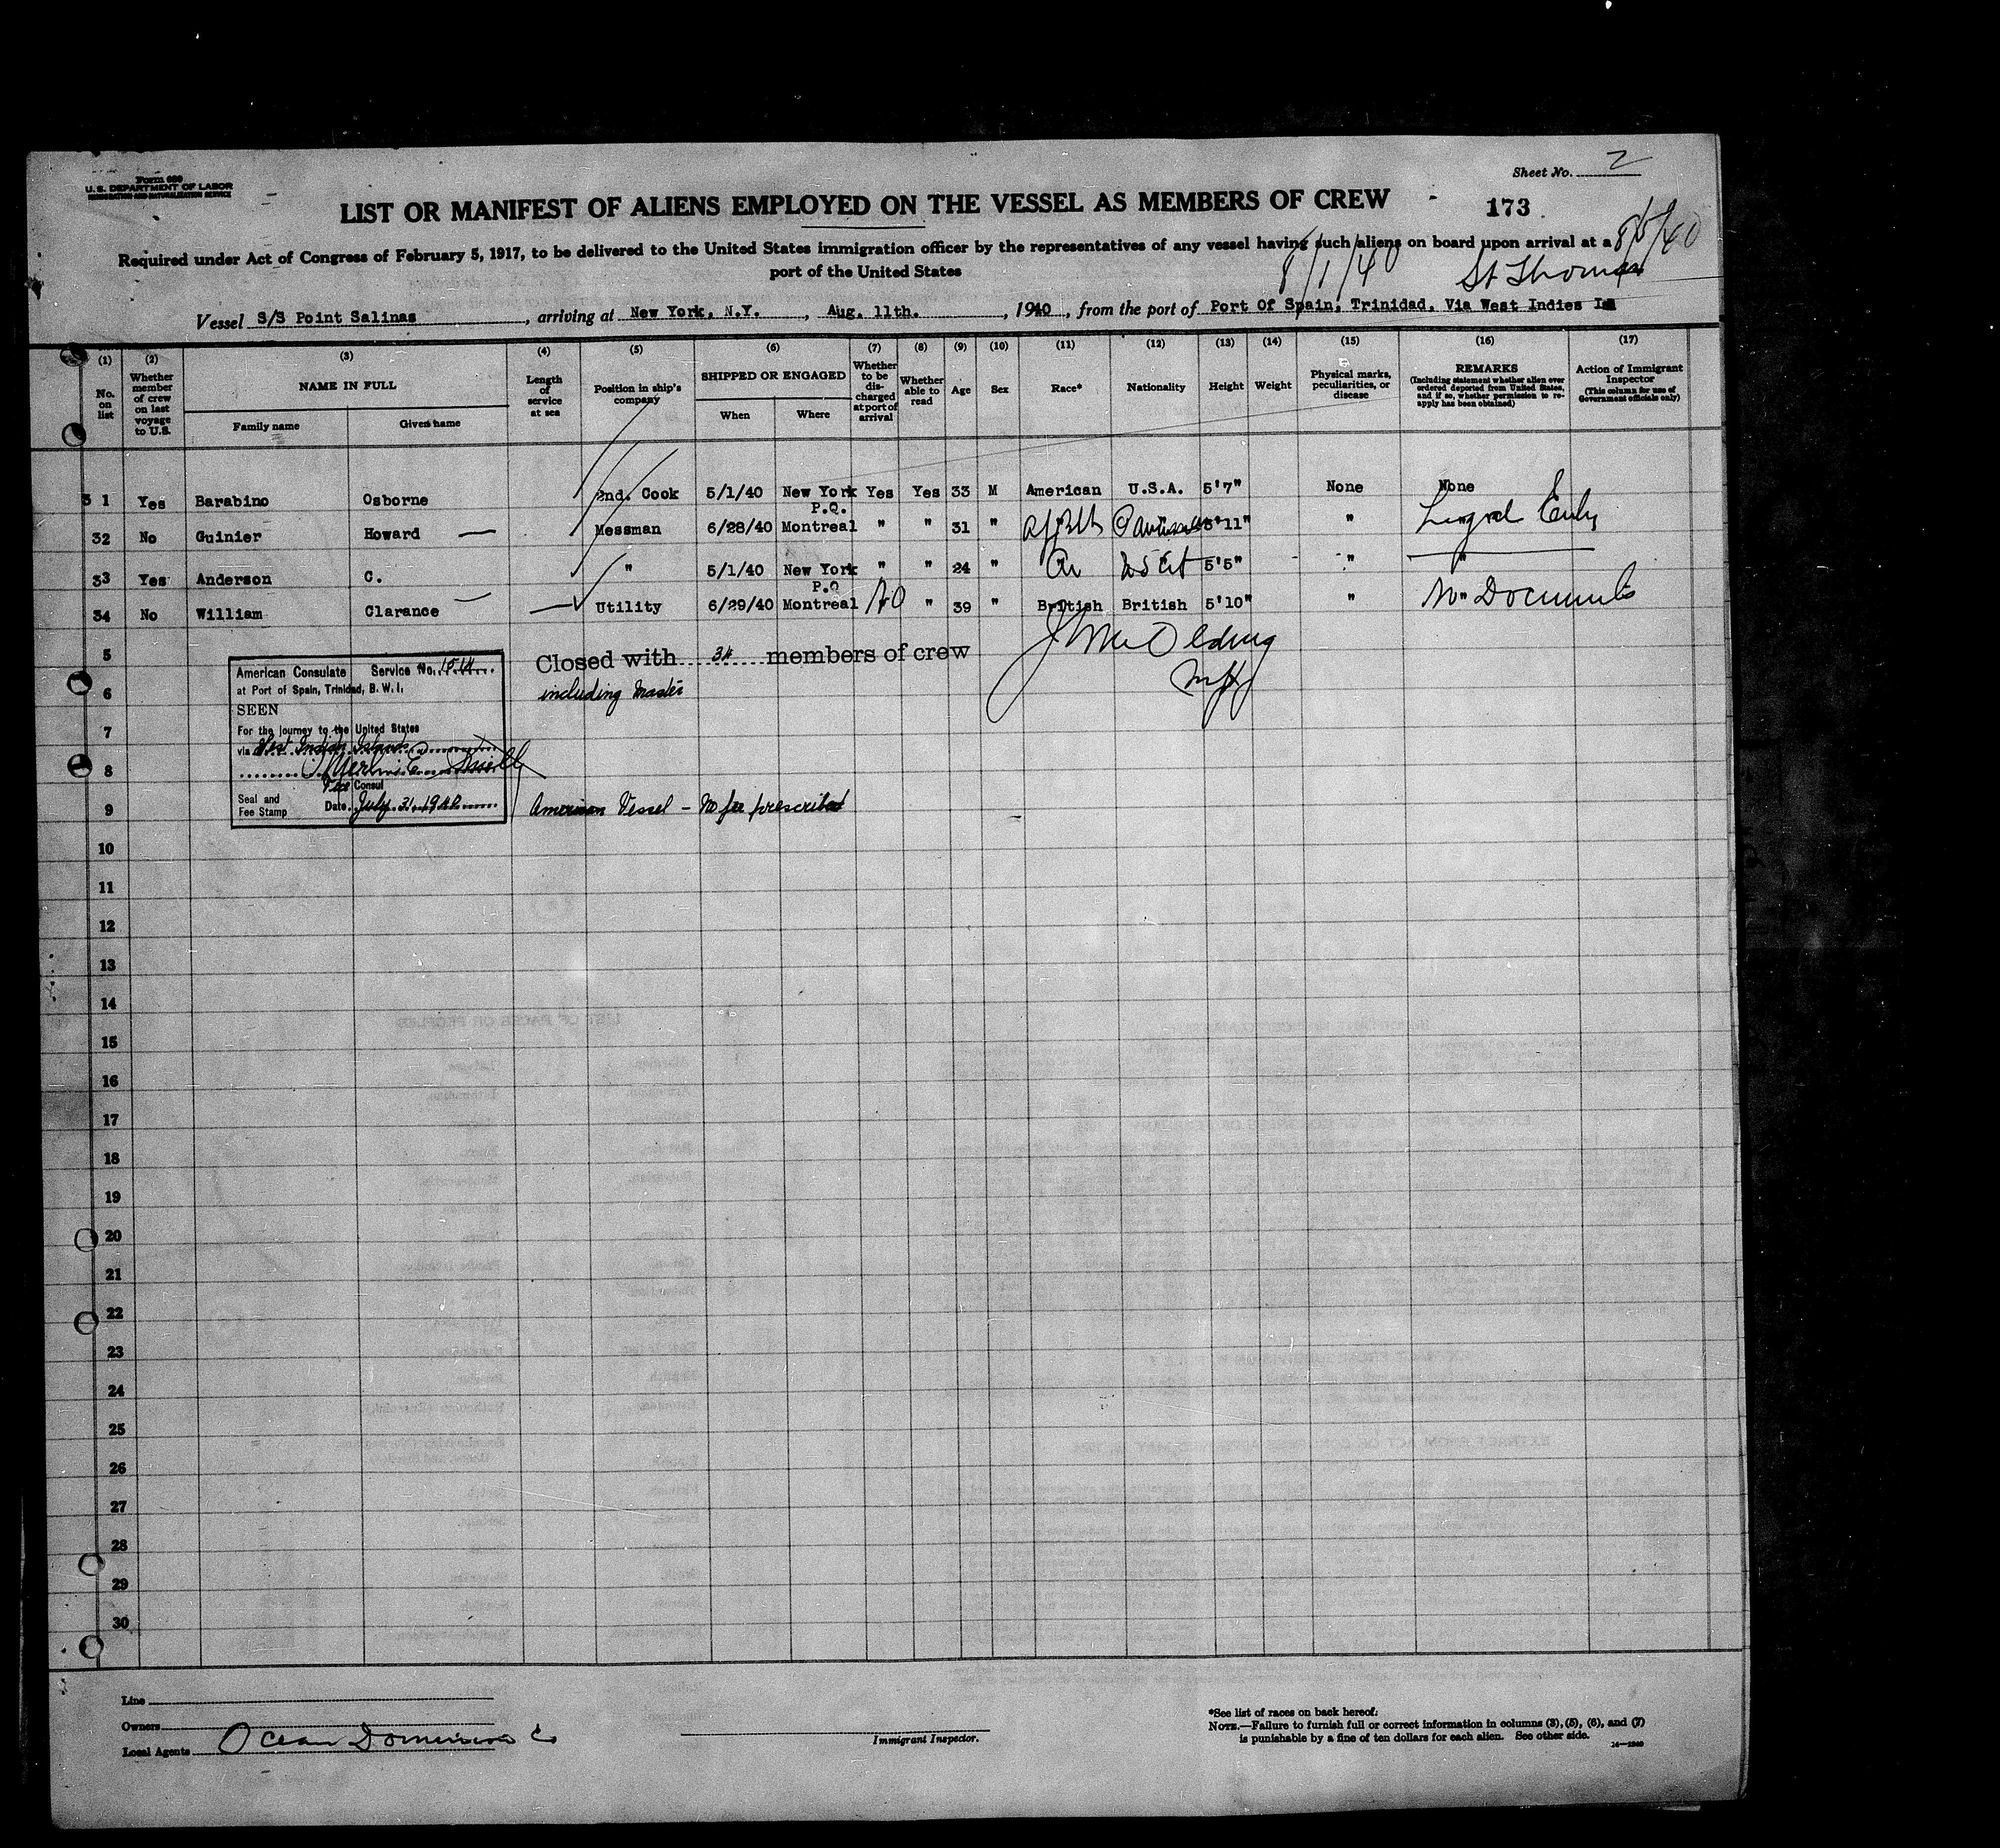 Form 680
U.S. DEPARTMENT OF LABOR
IMMIGRATION AND NATURALIZATION SERVICE
Sheet No. 2
LIST OR MANIFEST OF ALIENS EMPLOYED ON THE VESSEL AS MEMBERS OF CREW
173
Required under Act of Congress of February 5, 1917, to be delivered to the United States immigration officer by the representatives of any vessel having such aliens on board upon arrival at a
port of the United States
8/1/40 St Thomas
Vessel S/S Point Salinas, arriving at New York, N.Y., Aug. 11th., 1940, from the port of Port Of Spain, Trinidad, Via West Indies
(1) (2) (3) (4) (5) (6) (7) (8) (9) (10) (11) (12) (13) (14) (15) (16) (17)
No. on list
Whether member of crew on last voyage to U.S.
NAME IN FULL
Family name Given name
Length of service at sea
Position in ship's company
SHIPPED OR ENGAGED
When Where
Whether to be discharged at port of arrival
Whether able to read
Age
Sex
Race*
Nationality
Height
Weight
Physical marks, peculiarities, or disease
REMARKS
(Including statement whether alien ever ordered deported from United States, and if so, whether permission to reapply has been obtained)
Action of Immigrant Inspector
(This column for use of Government officials only)
3 1 Yes Barabino Osborne 2nd. Cook 5/1/40 New York Yes Yes 33 M American U.S.A. 5'7" None None
32 No Guinier Howard Messman 6/28/40 P.Q. Montreal " " 31 " 5'11" "
33 Yes Anderson C. " 5/1/40 New York " " 24 " 5'5" " "
34 No William Clarance Utility 6/29/40 P.Q Montreal No " 39 " British British 5'10" " No Documents
5
Closed with 34 members of crew
including Master
6
American Consulate Service No.
at Port of Spain, Trinidad, B.W.I.
SEEN
For the journey to the United States
via West Indian Islands
Vice Consul
Seal and
Fee Stamp
Date July 31, 1940
7
8
9
American Vessel - No fee prescribed
10
11
12
13
14
15
16
17
18
19
20
21
22
23
24
25
26
27
28
29
30
Line
Owners
Local Agents Ocean Dominion Co
Immigrant Inspector.
*See list of races on back hereof.
NOTE.—Failure to furnish full or correct information in columns (3), (5), (6), and (7)
is punishable by a fine of ten dollars for each alien. See other side.